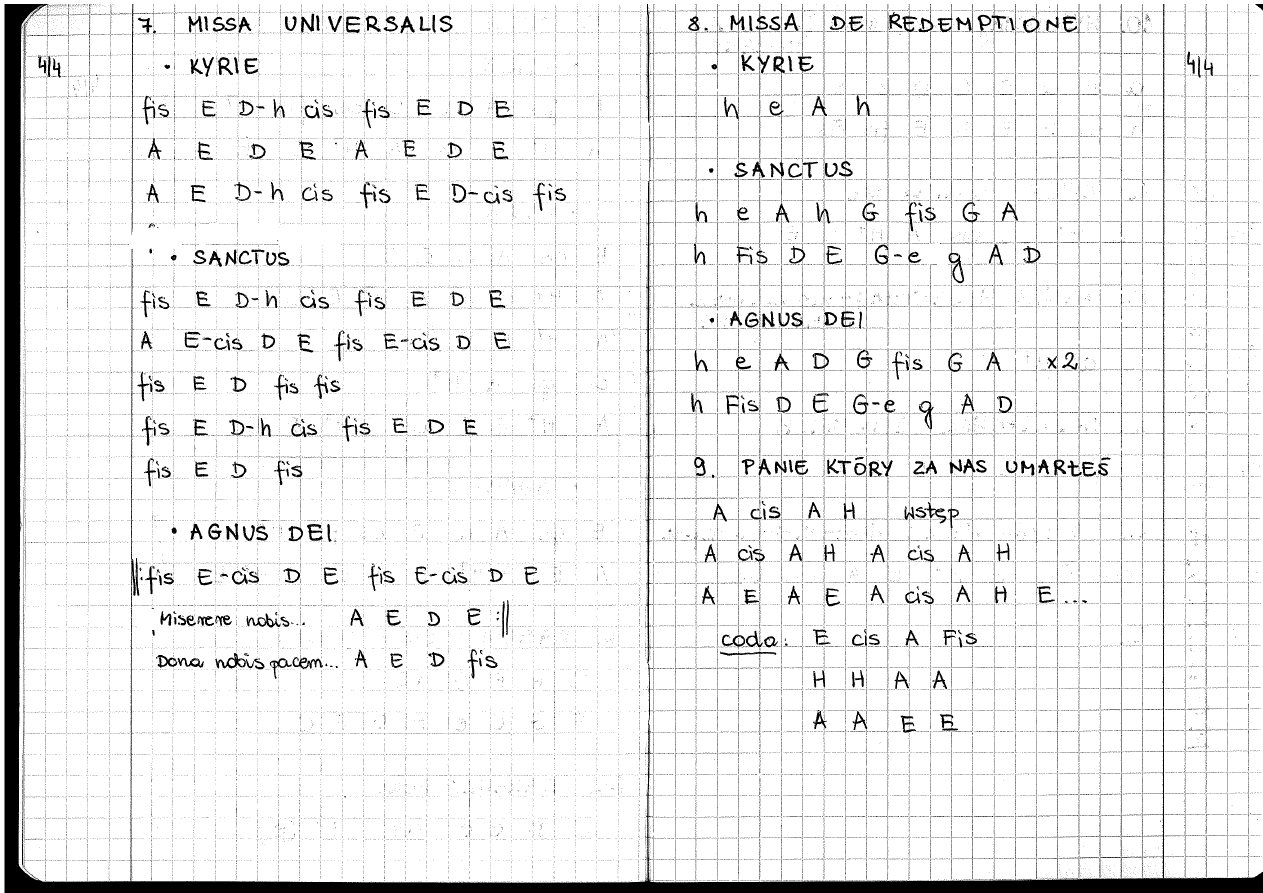 7. MISSA UNIVERSALIS
4/4
• KYRIE
fis E D-h cis fis E D E
A E D E A E D E
A E D-h cis fis E D-cis fis
• SANCTUS
fis E D-h cis fis E D E
A E-cis D E fis E-cis D E
fis E D fis fis
fis E D-h cis fis E D E
fis E D fis
• AGNUS DEI
‖: fis E-cis D E fis E-cis D E
Miserere nobis... A E D E :‖
Dona nobis pacem... A E D fis
8. MISSA DE REDEMPTIONE
• KYRIE
4/4
h e A h
• SANCTUS
h e A h G fis G A
h Fis D E G-e g A D
• AGNUS DEI
h e A D G fis G A x2
h Fis D E G-e g A D
9. PANIE KTÓRY ZA NAS UMARŁEŚ
A cis A H wstęp
A cis A H A cis A H
A E A E A cis A H E...
coda: E cis A Fis
H H A A
A A E E